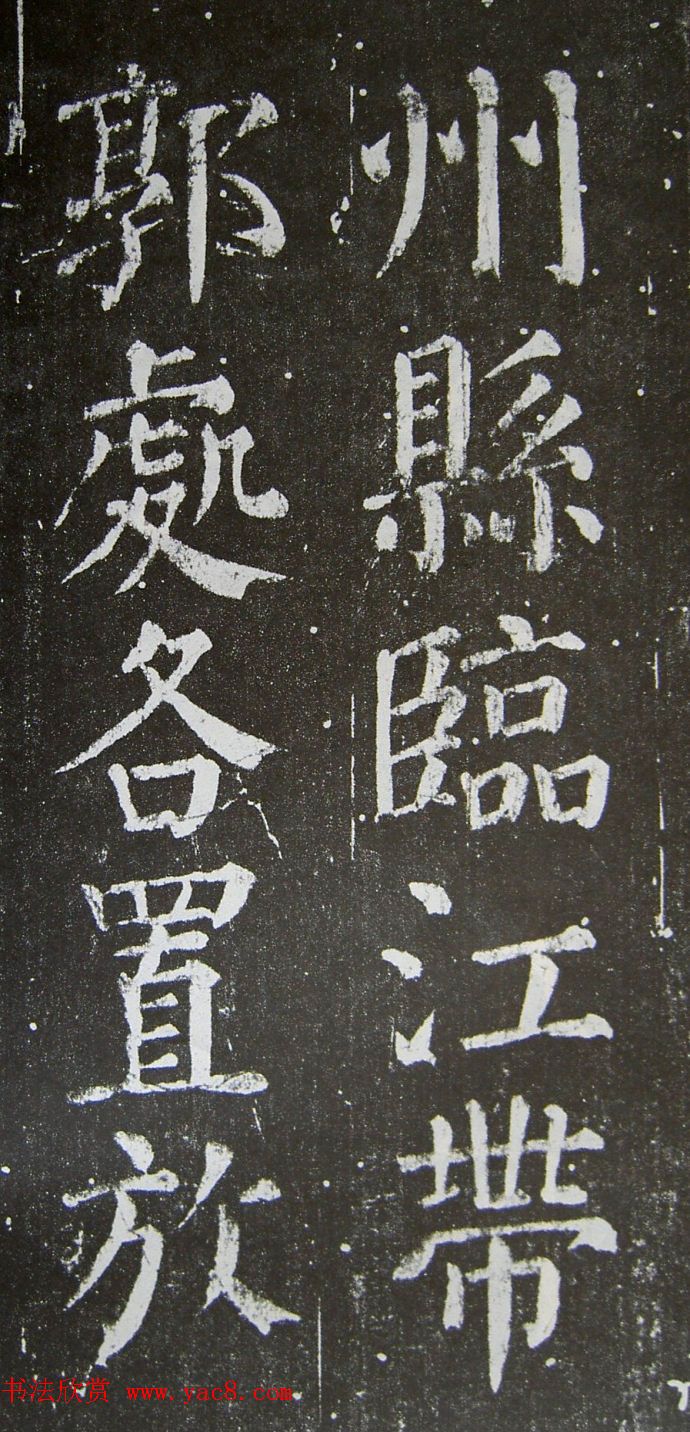 州縣臨江帶
郭處各置放
书法欣赏 www.yac8.com